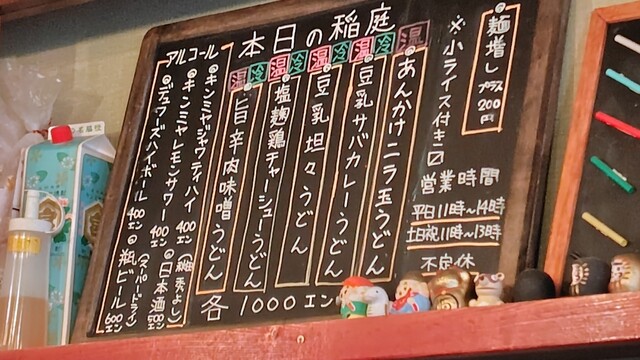 麺増し プラス200円
※小ライス付き〼
営業時間
平日11時〜14時
土日祝11時〜13時
不定休
本日の稲庭
温
あんかけニラ玉うどん
温 冷
豆乳サバカレーうどん
温 冷
豆乳坦々うどん
温 冷
塩麹鶏チャーシューうどん
温 冷
旨辛肉味噌うどん
各1000エン
アルコール
キンミヤジャワティハイ 400エン
キンミヤレモンサワー 400エン
デュワーズハイボール 400エン
日本酒 500エン
瓶ビール (スーパードライ) 600エン